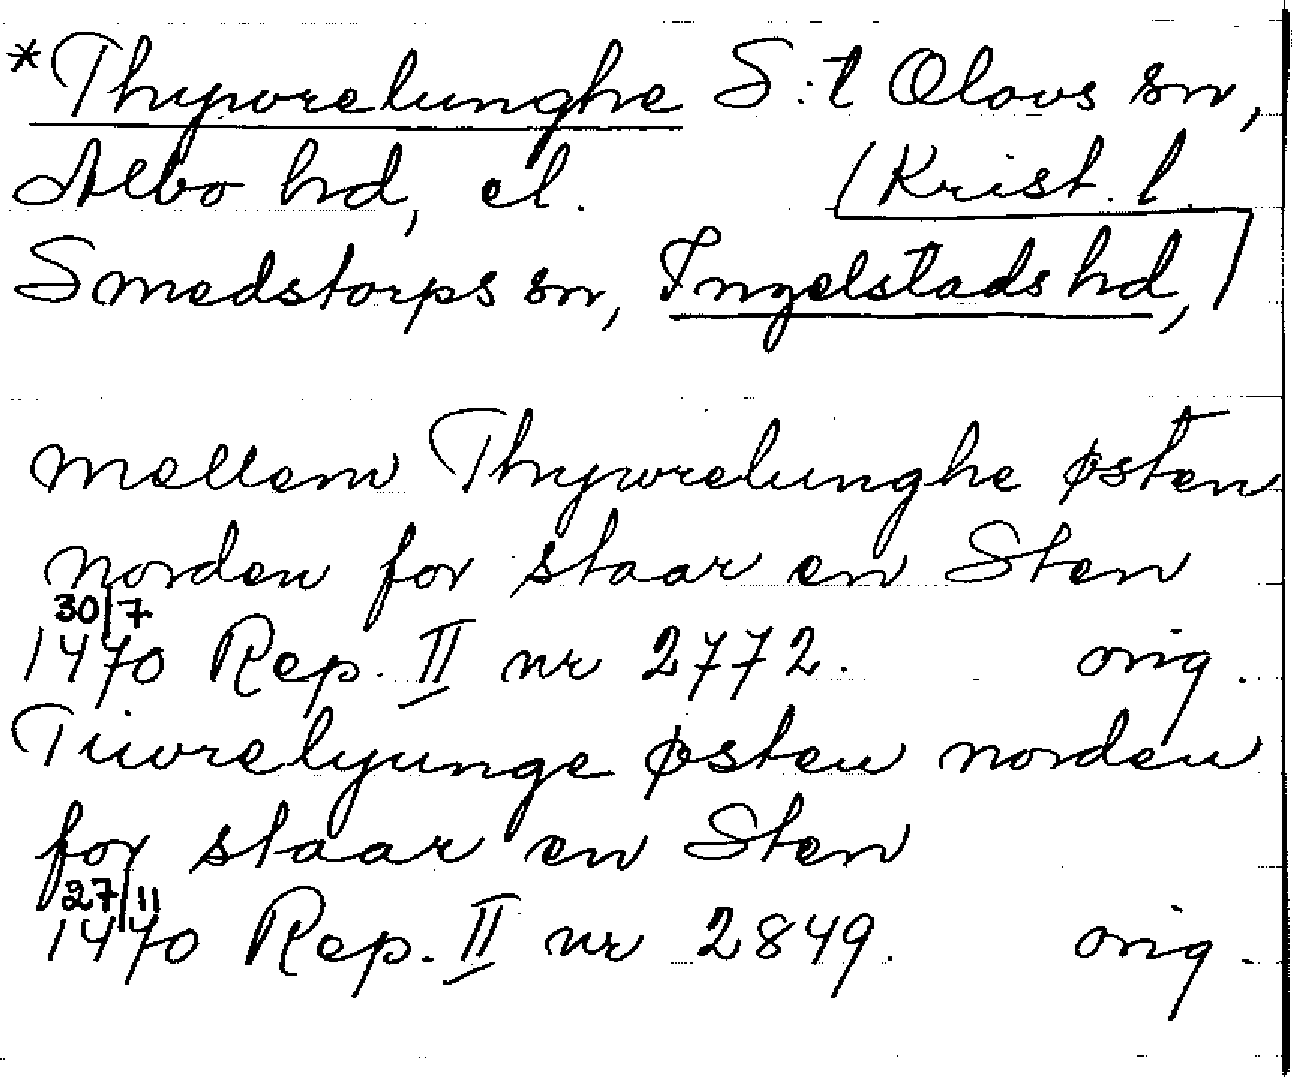 *Thywrelunghe S:t Olovs sn,
Albo hd, el. (Krist. l.
Smedstorps sn, Ingelstads hd,
mellem Thywrelunghe østen
norden for staar en Sten
30/7
1470 Rep. II nr 2772. orig.
Tiwrelyunge østen norden
for staar en Sten
27/11
1470 Rep. II nr 2849. orig.